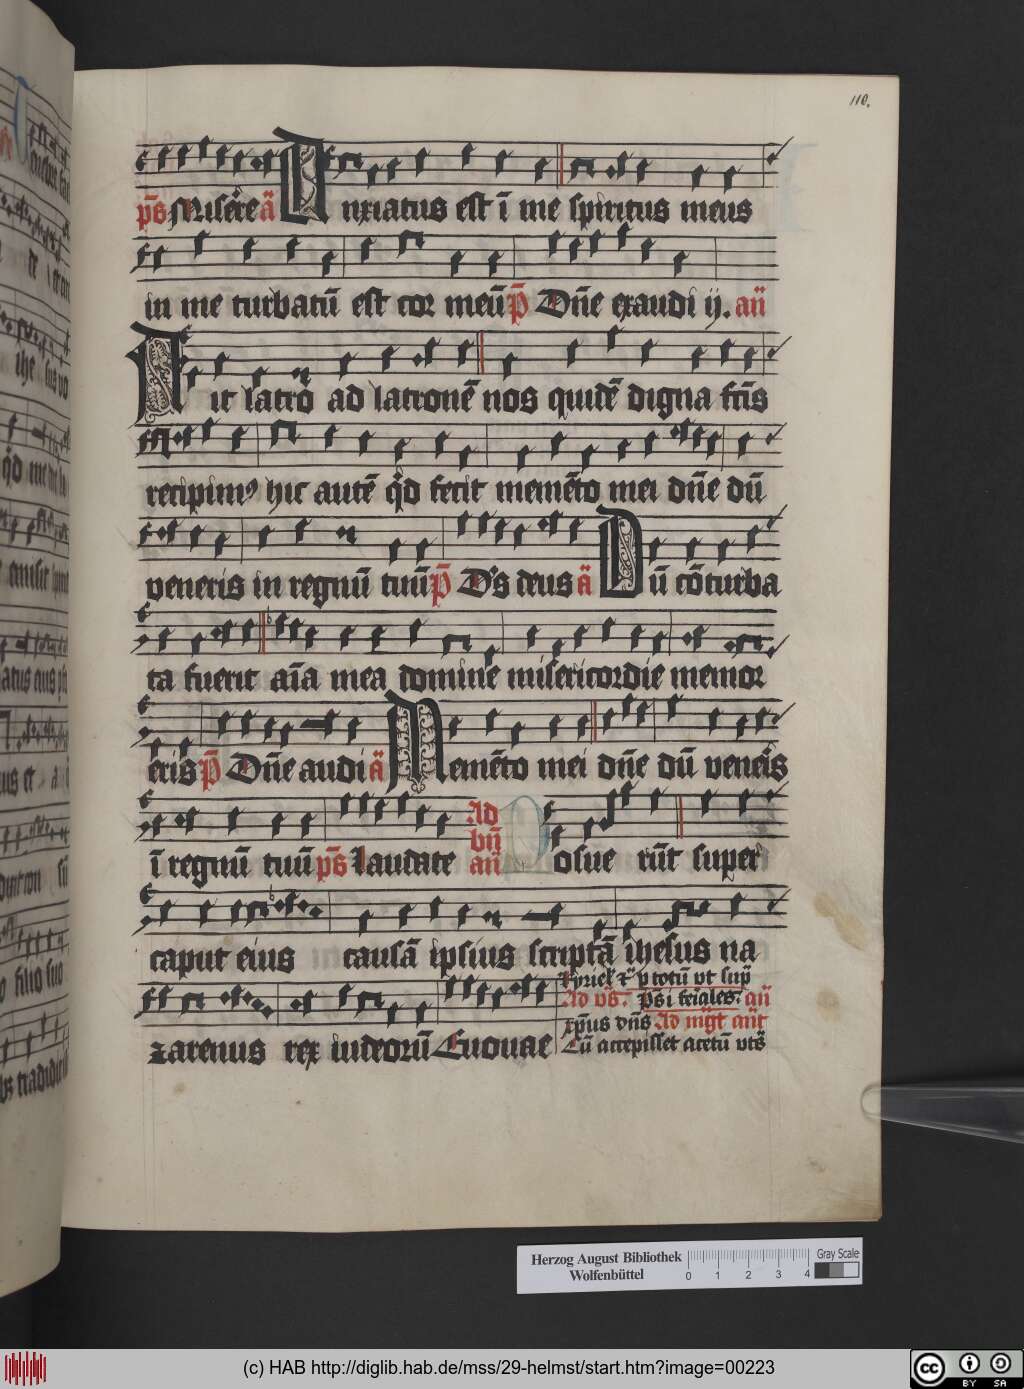 110.
ps̄ Miserere ā Anxiatus est ī me spiritus meus
in me turbatū est cor meū p̄ Dn̄e exaudi ij. an̄
Ait latro ad latronē nos quidē digna fcīs
recipimꝰ hic autē qd̓ fecit memēto mei dn̄e dū
veneris in regnū tuū p̄ Ds̄ deus ā Dū cōturba
ta fuerit aīa mea domine misericordie memor
eris p̄ Dn̄e audi ā Memēto mei dn̄e dū veneis̓
ī regnū tuū ps̄ Laudate Ad bn̄ an̄ Posue rūt super
caput eius causā ipsius scriptā ihesus na
zarenus rex iudeorū Euouae
Kyriel̓ ⁊c̄ p totū vt sup̄
Ad vs̄. Ps̄ i feīales. an̄
xp̄us dn̄s Ad mg̓t ant̓
Cū accepisset acetū vts̄
de
ihe sus vo
qd̓ me de
amisit
atus eius
us et a
filio suo
tradidit
Herzog August Bibliothek
Wolfenbüttel
0 1 2 3 4
Gray Scale
(c) HAB http://diglib.hab.de/mss/29-helmst/start.htm?image=00223
cc
BY SA